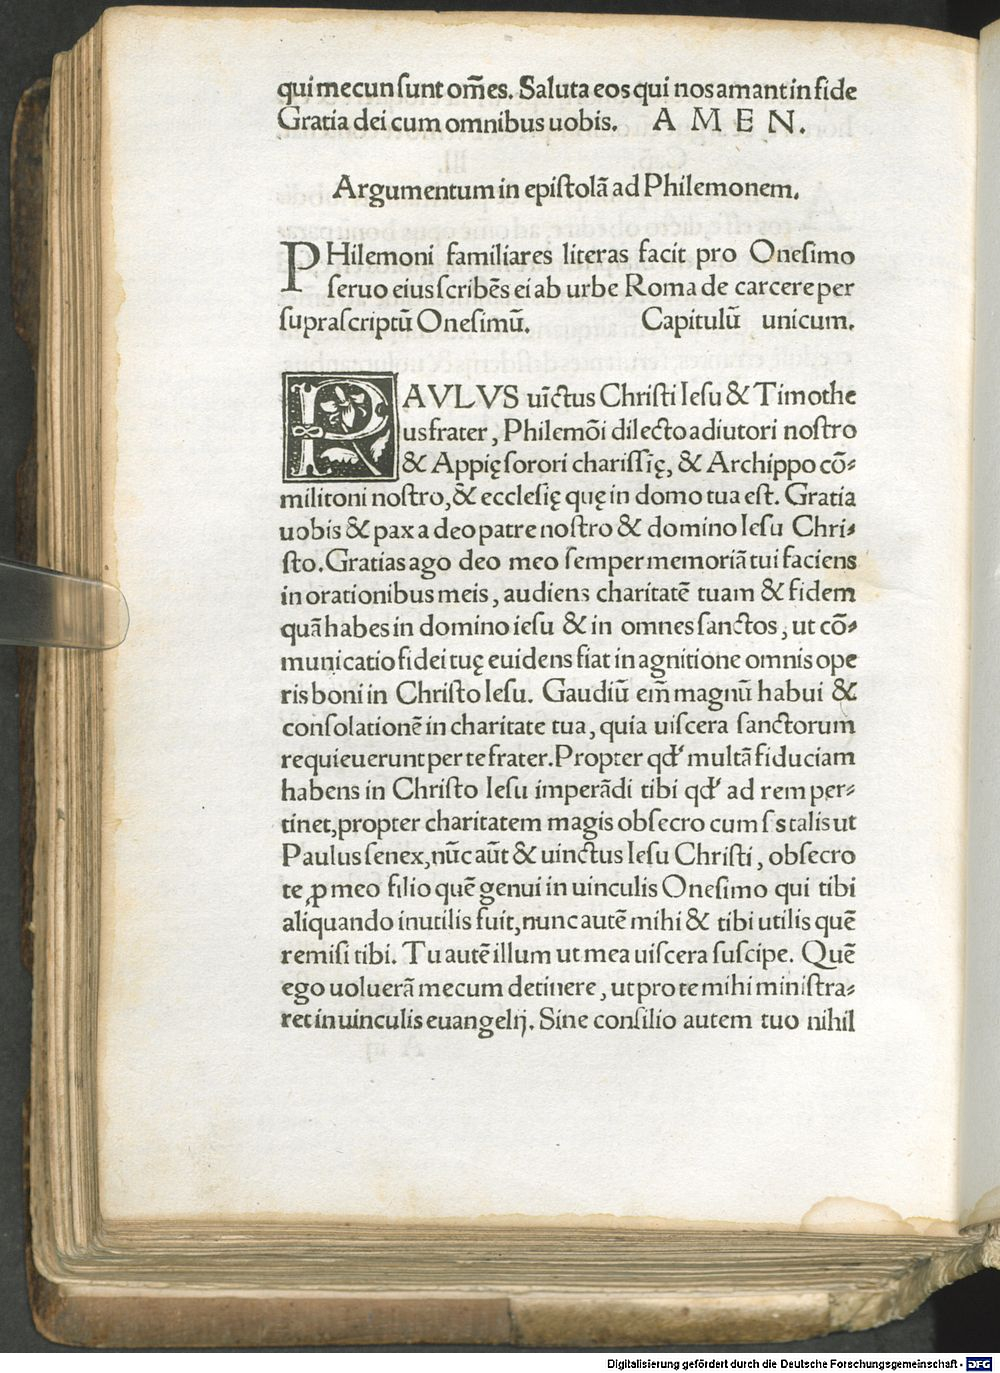 qui mecun sunt om̄es. Saluta eos qui nos amant in fide
Gratia dei cum omnibus uobis. A M E N.
Argumentum in epistolā ad Philemonem.
PHilemoni familiares literas facit pro Onesimo
seruo eius scribēs ei ab urbe Roma de carcere per
suprascriptū Onesimū. Capitulū unicum.
PAVLVS uīctus Christi Iesu & Timothe
us frater, Philemōi dilecto adiutori nostro
& Appię sorori charissię, & Archippo cō-
militoni nostro, & ecclesię quę in domo tua est. Gratia
uobis & pax a deo patre nostro & domino Iesu Chri-
sto. Gratias ago deo meo semper memoriā tui faciens
in orationibus meis, audiens charitatē tuam & fidem
quā habes in domino iesu & in omnes sanctos, ut cō-
municatio fidei tuę euidens fiat in agnitione omnis ope
ris boni in Christo Iesu. Gaudiū em̄ magnū habui &
consolationē in charitate tua, quia uiscera sanctorum
requieuerunt per te frater. Propter qd' multā fiduciam
habens in Christo Iesu imperādi tibi qd' ad rem per-
tinet, propter charitatem magis obsecro cum sis talis ut
Paulus senex, nūc aūt & uinctus Iesu Christi, obsecro
te ꝓ meo filio quē genui in uinculis Onesimo qui tibi
aliquando inutilis fuit, nunc autē mihi & tibi utilis quē
remisi tibi. Tu autē illum ut mea uiscera suscipe. Quē
ego uoluerā mecum detinere, ut pro te mihi ministra-
ret in uinculis euangelij. Sine consilio autem tuo nihil
Digitalisierung gefördert durch die Deutsche Forschungsgemeinschaft - DFG